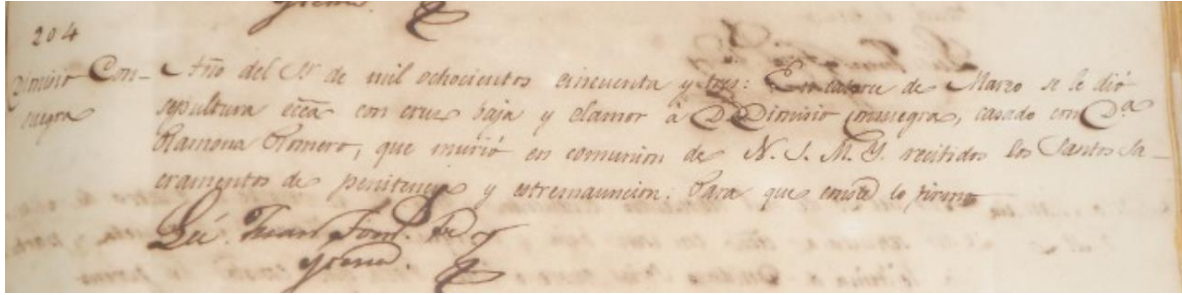 204
Dionisio Con-
suegra
Año del Sr de mil ochocientos cincuenta y tres: En catorce de Marzo se le dió
sepultura ecca con cruz baja y clamor à D. Dionisio Consuegra, casado con Da
Ramona Romero, que murió en comunion de N. S. M. Y. recibidos los Santos Sa-
cramentos de penitencia y estremauncion. Para que conste lo firmo
Juan